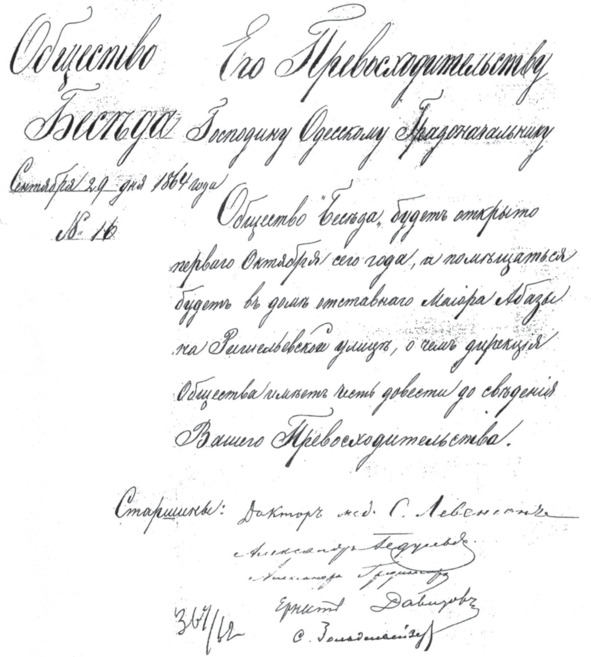 Общество
Бесѣда
Сентября 29 дня 1864 года
№ 16
Его Превосходительству
Господину Одесскому Градоначальнику
Общество "Бесѣда" будетъ открыто
перваго Октября сего года, и помѣщаться
будетъ въ домѣ отставнаго Маіора Абазы
на Ришельевской улицѣ, о чемъ дирекція
Общества имѣетъ честь довести до свѣденія
Вашего Превосходительства.
Старшины: Докторъ мед. С. Левенсонъ
Александръ
Александръ
Ернстъ Давидовъ
С.